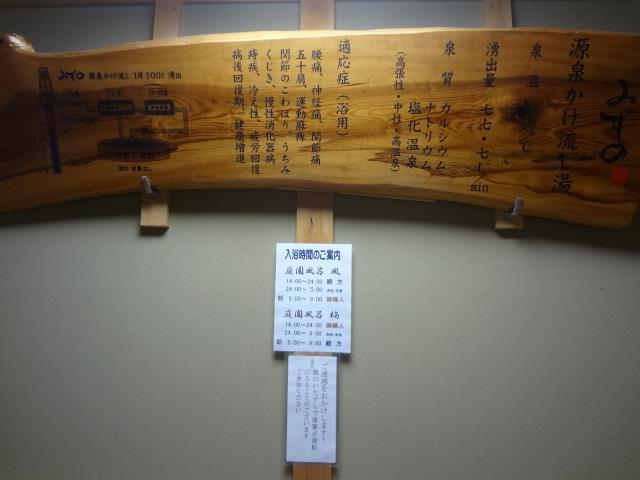 源泉かけ流し湯
みずの
泉温 ℃
湧出量 七七・七L/min
泉質 カルシウム
ナトリウム
塩化温泉
(高張性・中性・高温泉)
適応症(浴用)
腰痛、神経痛、関節痛
五十肩、運動麻痺
関節のこわばり、うちみ
くじき、慢性消化器病
痔疾、冷え性、疲労回復
病後回復期、健康増進
みずの 源泉かけ流し 1日100t湧出
入浴時間のご案内
庭園風呂 風
14:00~24:00 殿方
24:00~ 5:00
朝 5:00~ 9:00 御婦人
庭園風呂 楠
14:00~24:00 御婦人
24:00~ 5:00
朝 5:00~ 9:00 殿方
ご迷惑をおかけします!
風のいたずらで落葉が湯船
に入ることがございます
ご承知ください